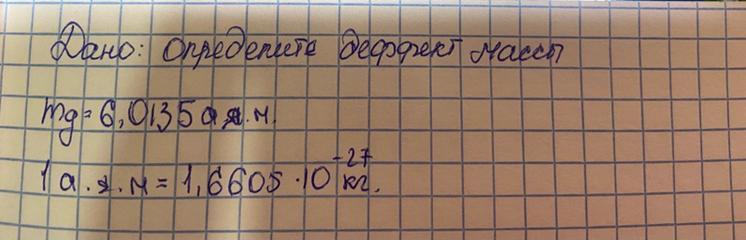 Дано: определить деффект массы
mg = 6,0135 а.е.м.
1 а.е.м = 1,6605 · 10⁻²⁷ кг.